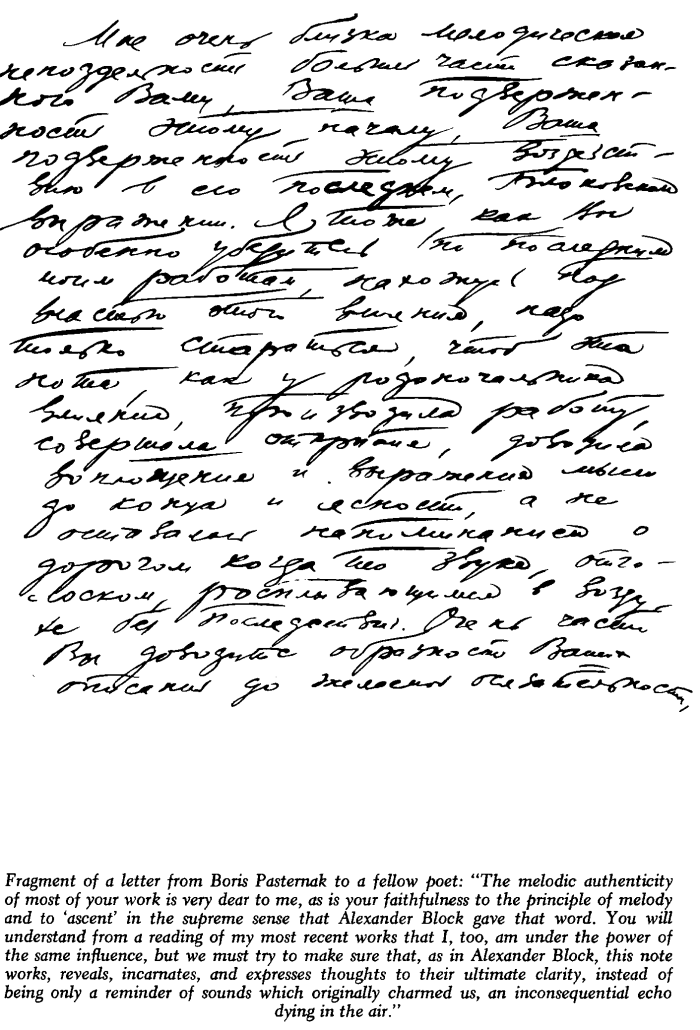 Мне очень близка мелодическая
неподдельность большей части сказан-
ного Вами, Ваша подвержен-
ность этому началу, Ваша
подверженность этому воздейст-
вию в его последнем, Блоковском
выражении. Я тоже, как Вы
особенно убедитесь по последним
моим работам, нахожусь под
властью этого влияния, надо
только стараться, чтоб эта
нота, как у родоначальника
влияния, производила работу,
совершала открытие, доводила
воплощение и выражение мысли
до конца и ясности, а не
оставалась напоминанием о
дорогом когда то звуке, отго-
лоском, расплывающимся в возду-
хе без последствий. Очень часто
Вы доводите образность Ваших
описаний до осязательности,
Fragment of a letter from Boris Pasternak to a fellow poet: “The melodic authenticity
of most of your work is very dear to me, as is your faithfulness to the principle of melody
and to ‘ascent’ in the supreme sense that Alexander Block gave that word. You will
understand from a reading of my most recent works that I, too, am under the power of
the same influence, but we must try to make sure that, as in Alexander Block, this note
works, reveals, incarnates, and expresses thoughts to their ultimate clarity, instead of
being only a reminder of sounds which originally charmed us, an inconsequential echo
dying in the air.”